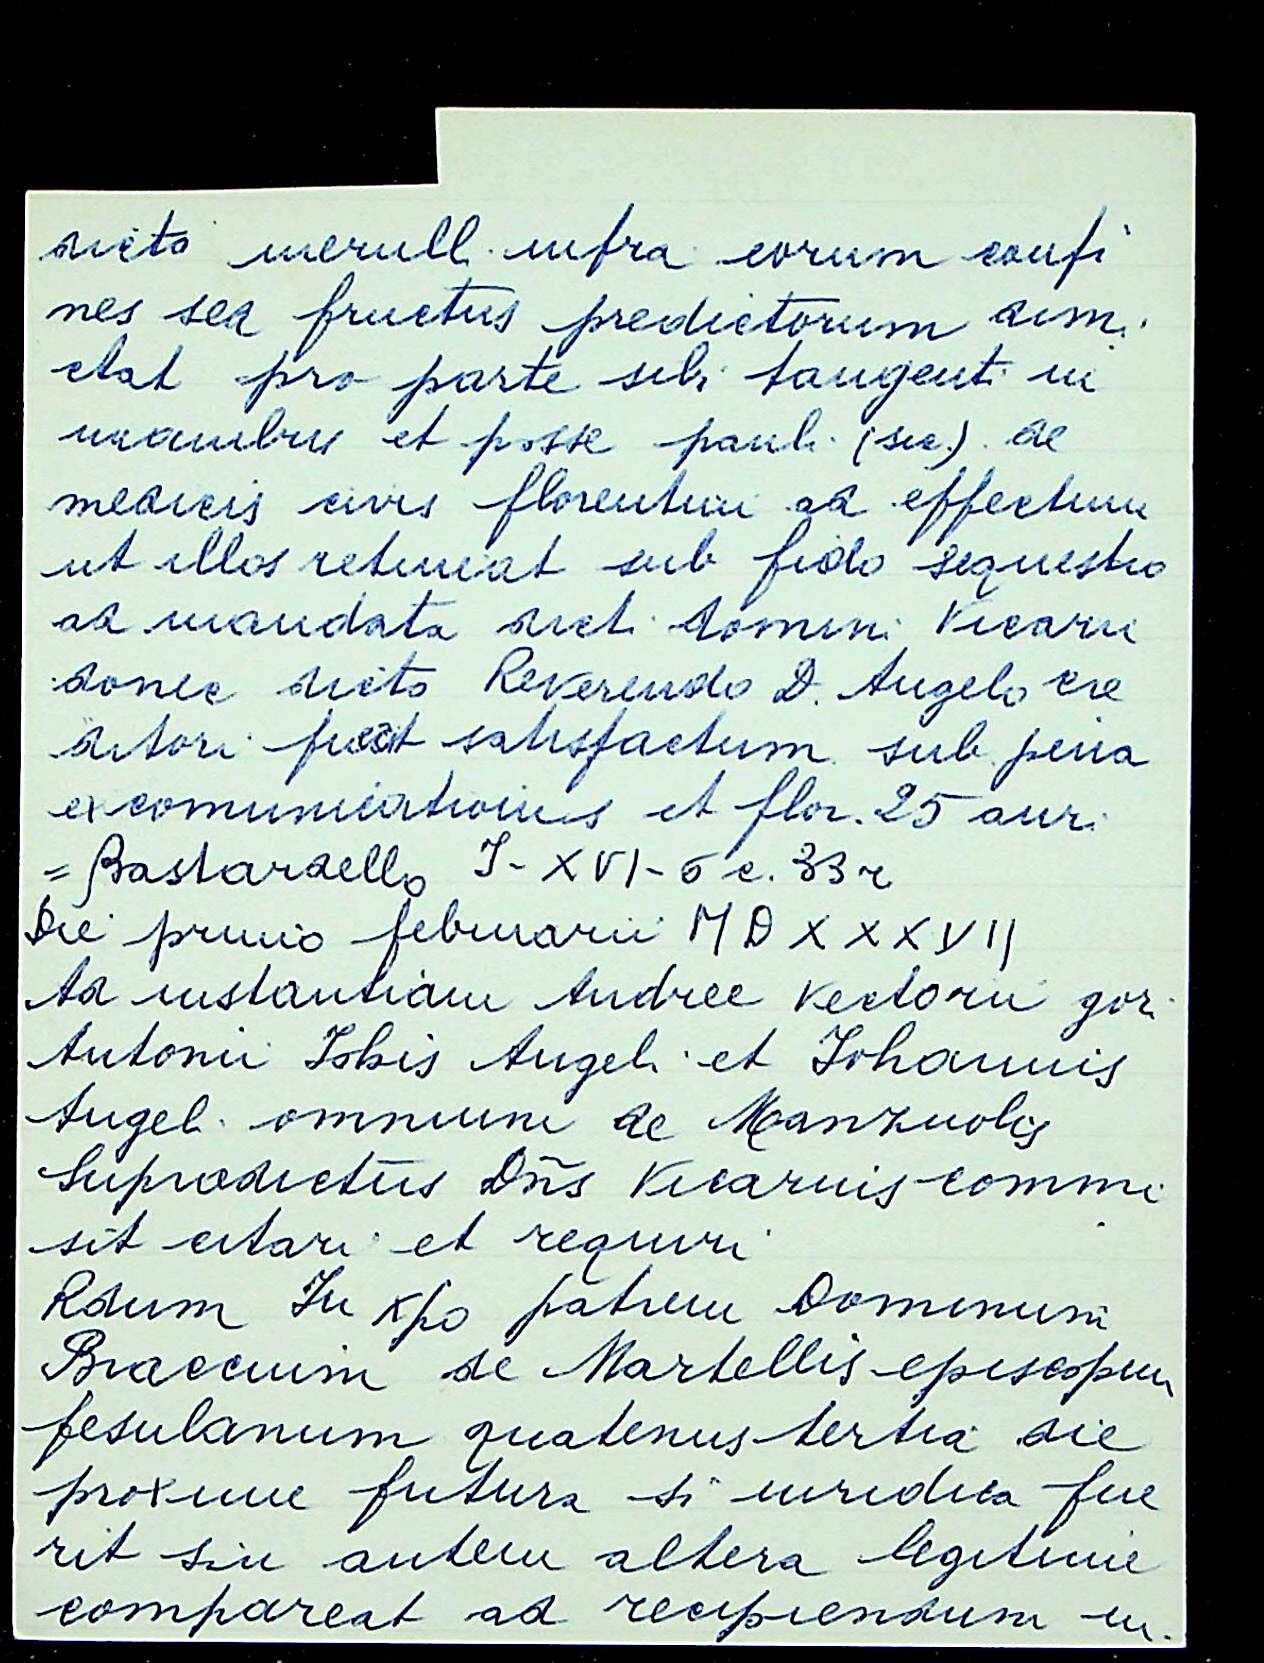 dicto merull. infra eorum confi
nes sed fructus predictorum dimi
ctat pro parte sibi tangenti in
manibus et posse pauli (sic). de
medicis civis florentini ad effectum
ut illos retineat sub fido sequestro
ad mandata dicti domini Vicarii
donec dicto Reverendo D. Angelo cre
ditori fuerit satisfactum sub pena
excomunicationis et flor. 25 auri
= Bastardello I-XVI-6 c. 33 r
Die primo februarii MDXXXVII
Ad instantiam Andree Vectorii gori
Antonii Angeli et Johannis
Angeli omnium de Manzuolis
Supradictus Dñs Vicarius commi
sit citari et requiri
Rdum In Xpo patrem Dominum
Braccium de Martellis episcopum
fesulanum quatenus tertia die
proxime futura si iuridica fue
rit sin autem altera legitime
compareat ad recipiendum in